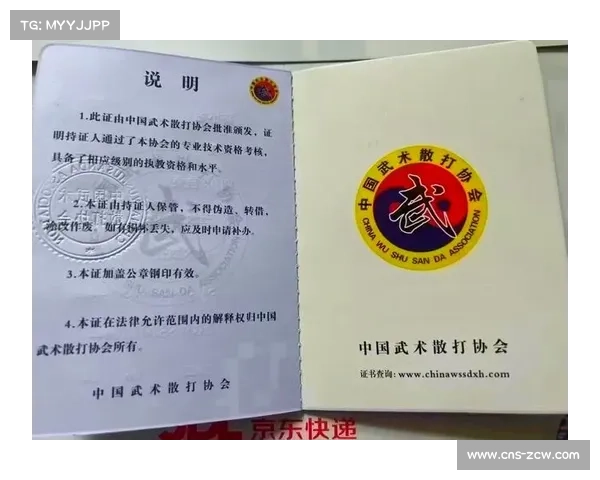 TG: MYYJJPP
说 明
1.此证由中国武术散打协会批准颁发，证
明持证人通过了本协会的专业技术资格考核，
具备了相应级别的执教资格和水平。
2.本证由持证人保管，不得伪造、转借，
涂改作废。如有损坏丢失，应及时申请补办。
3.本证加盖公章钢印有效。
4.本证在法律允许范围内的解释权归中国
武术散打协会所有。
中国武术散打协会
中国武术散打协会
武
CHINA WU SHU SAN DA ASSOCIATION
中国武术散打协会
证书查询: www.chinawssdxh.com
京东快递
www.cns-zcw.com